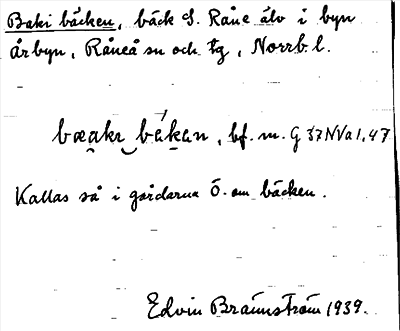 Baki bäcken, bäck S. Råne älv i byn
Årbyn, Råneå sn och tg, Norrb. l.
bæakι békan, bf. m. G 37NVa1,47
Kallas så i gårdarna Ö. om bäcken.
Edvin Brännström 1939.